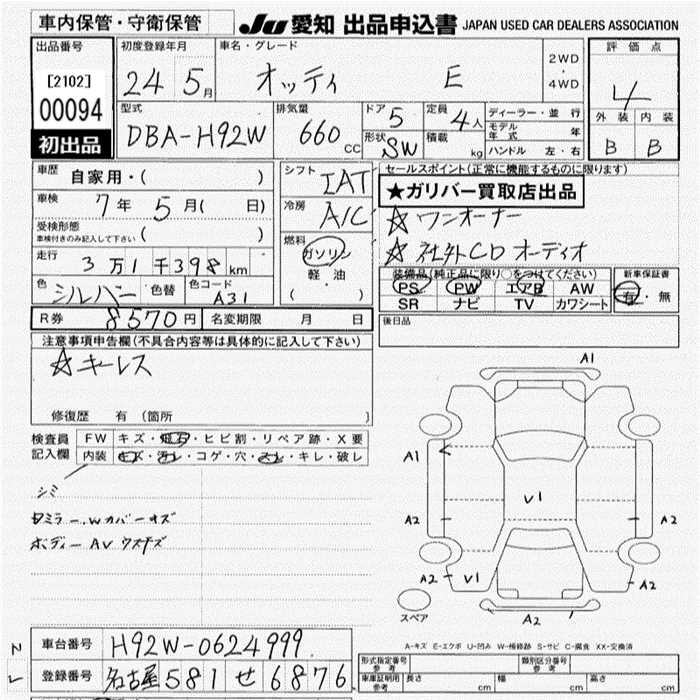 車内保管・守衛保管
JU 愛知 出品申込書 JAPAN USED CAR DEALERS ASSOCIATION
出品番号
[2102]
00094
初出品
初度登録年月
24 5月
車名・グレード
オッティ E
2WD
・
4WD
評価点
4
外装 内装
B B
型式
DBA-H92W
排気量
660 CC
ドア 5
形状 SW
定員 4人
積載 kg
ディーラー・並 行
モデル年式 年
ハンドル 左・右
車歴
自家用・( )
車検
7年 5月( 日)
受検形態
車検付きのみ記入して下さい ( )
走行
3万1千398km
色 シルバー 色替 色コード A31
シフト
IAT
冷房
A/C
燃料
ガソリン
軽 油
( )
セールスポイント(正常に機能するものに限ります)
★ガリバー買取店出品
☆ワンオーナー
☆社外CDオーディオ
装備品(純正品に限り○をつけてください)
PS PW エアB AW
SR ナビ TV カワシート
新車保証書
有・無
R券 8570円 名変期限 月 日
後日品
注意事項申告欄(不具合内容等は具体的に記入して下さい)
☆キーレス
修復歴 有 (箇所 )
検査員記入欄
FW キズ・飛石・ヒビ割・リペア跡・X要
内装 キズ・汚レ・コゲ・穴・スレ・キレ・破レ
シミ
ミラー.Wカバーキズ
ボディーAVウスキズ
A1
A1
V1
A2
A2
A2
V1
A2
A2
スペア
A-キズ E-エクボ U-凹み W-補修跡 S-サビ C-腐食 XX-交換済
車台番号 H92W-0624999
登録番号 名古屋581せ6876
形式指定番号 参考
類別区分番号 参考
車庫証明用 参考 長さ cm 幅 cm 高さ cm